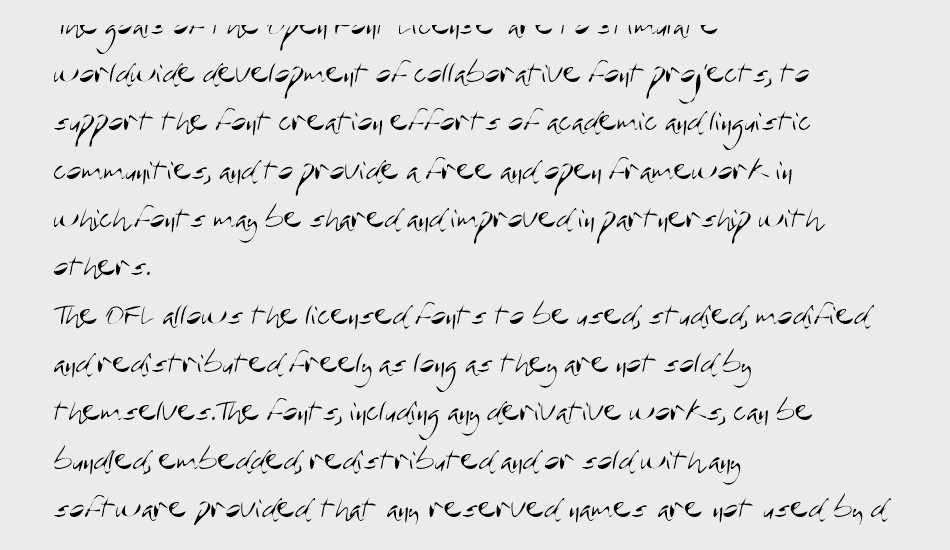 The goals of the Open Font License are to stimulate
worldwide development of collaborative font projects, to
support the font creation efforts of academic and linguistic
communities, and to provide a free and open framework in
which fonts may be shared and improved in partnership with
others.
The OFL allows the licensed fonts to be used, studied, modified
and redistributed freely as long as they are not sold by
themselves. The fonts, including any derivative works, can be
bundled, embedded, redistributed and or sold with any
software provided that any reserved names are not used by d